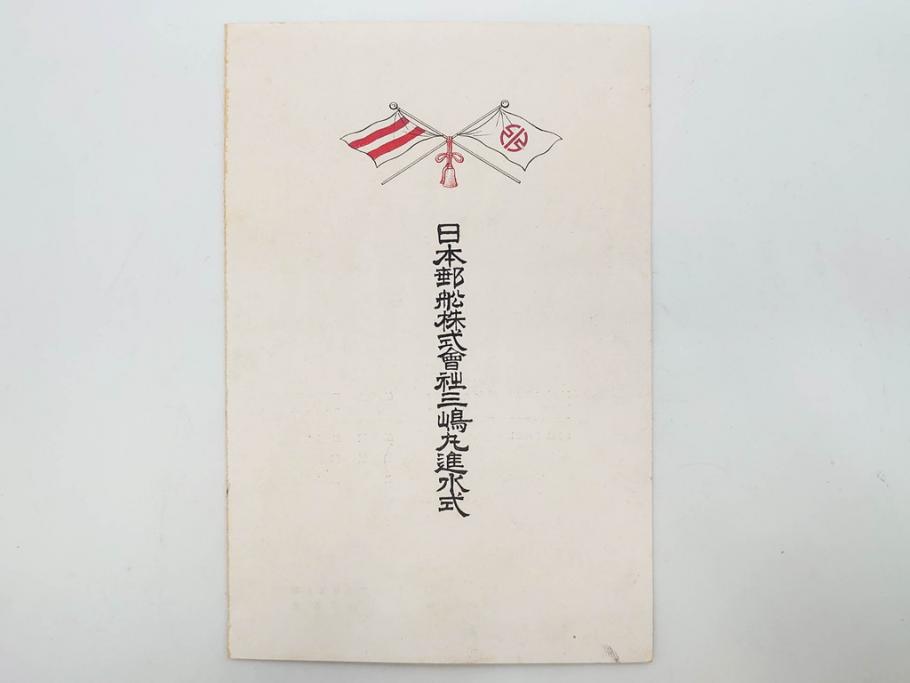 日本郵船株式會社三嶋丸進水式